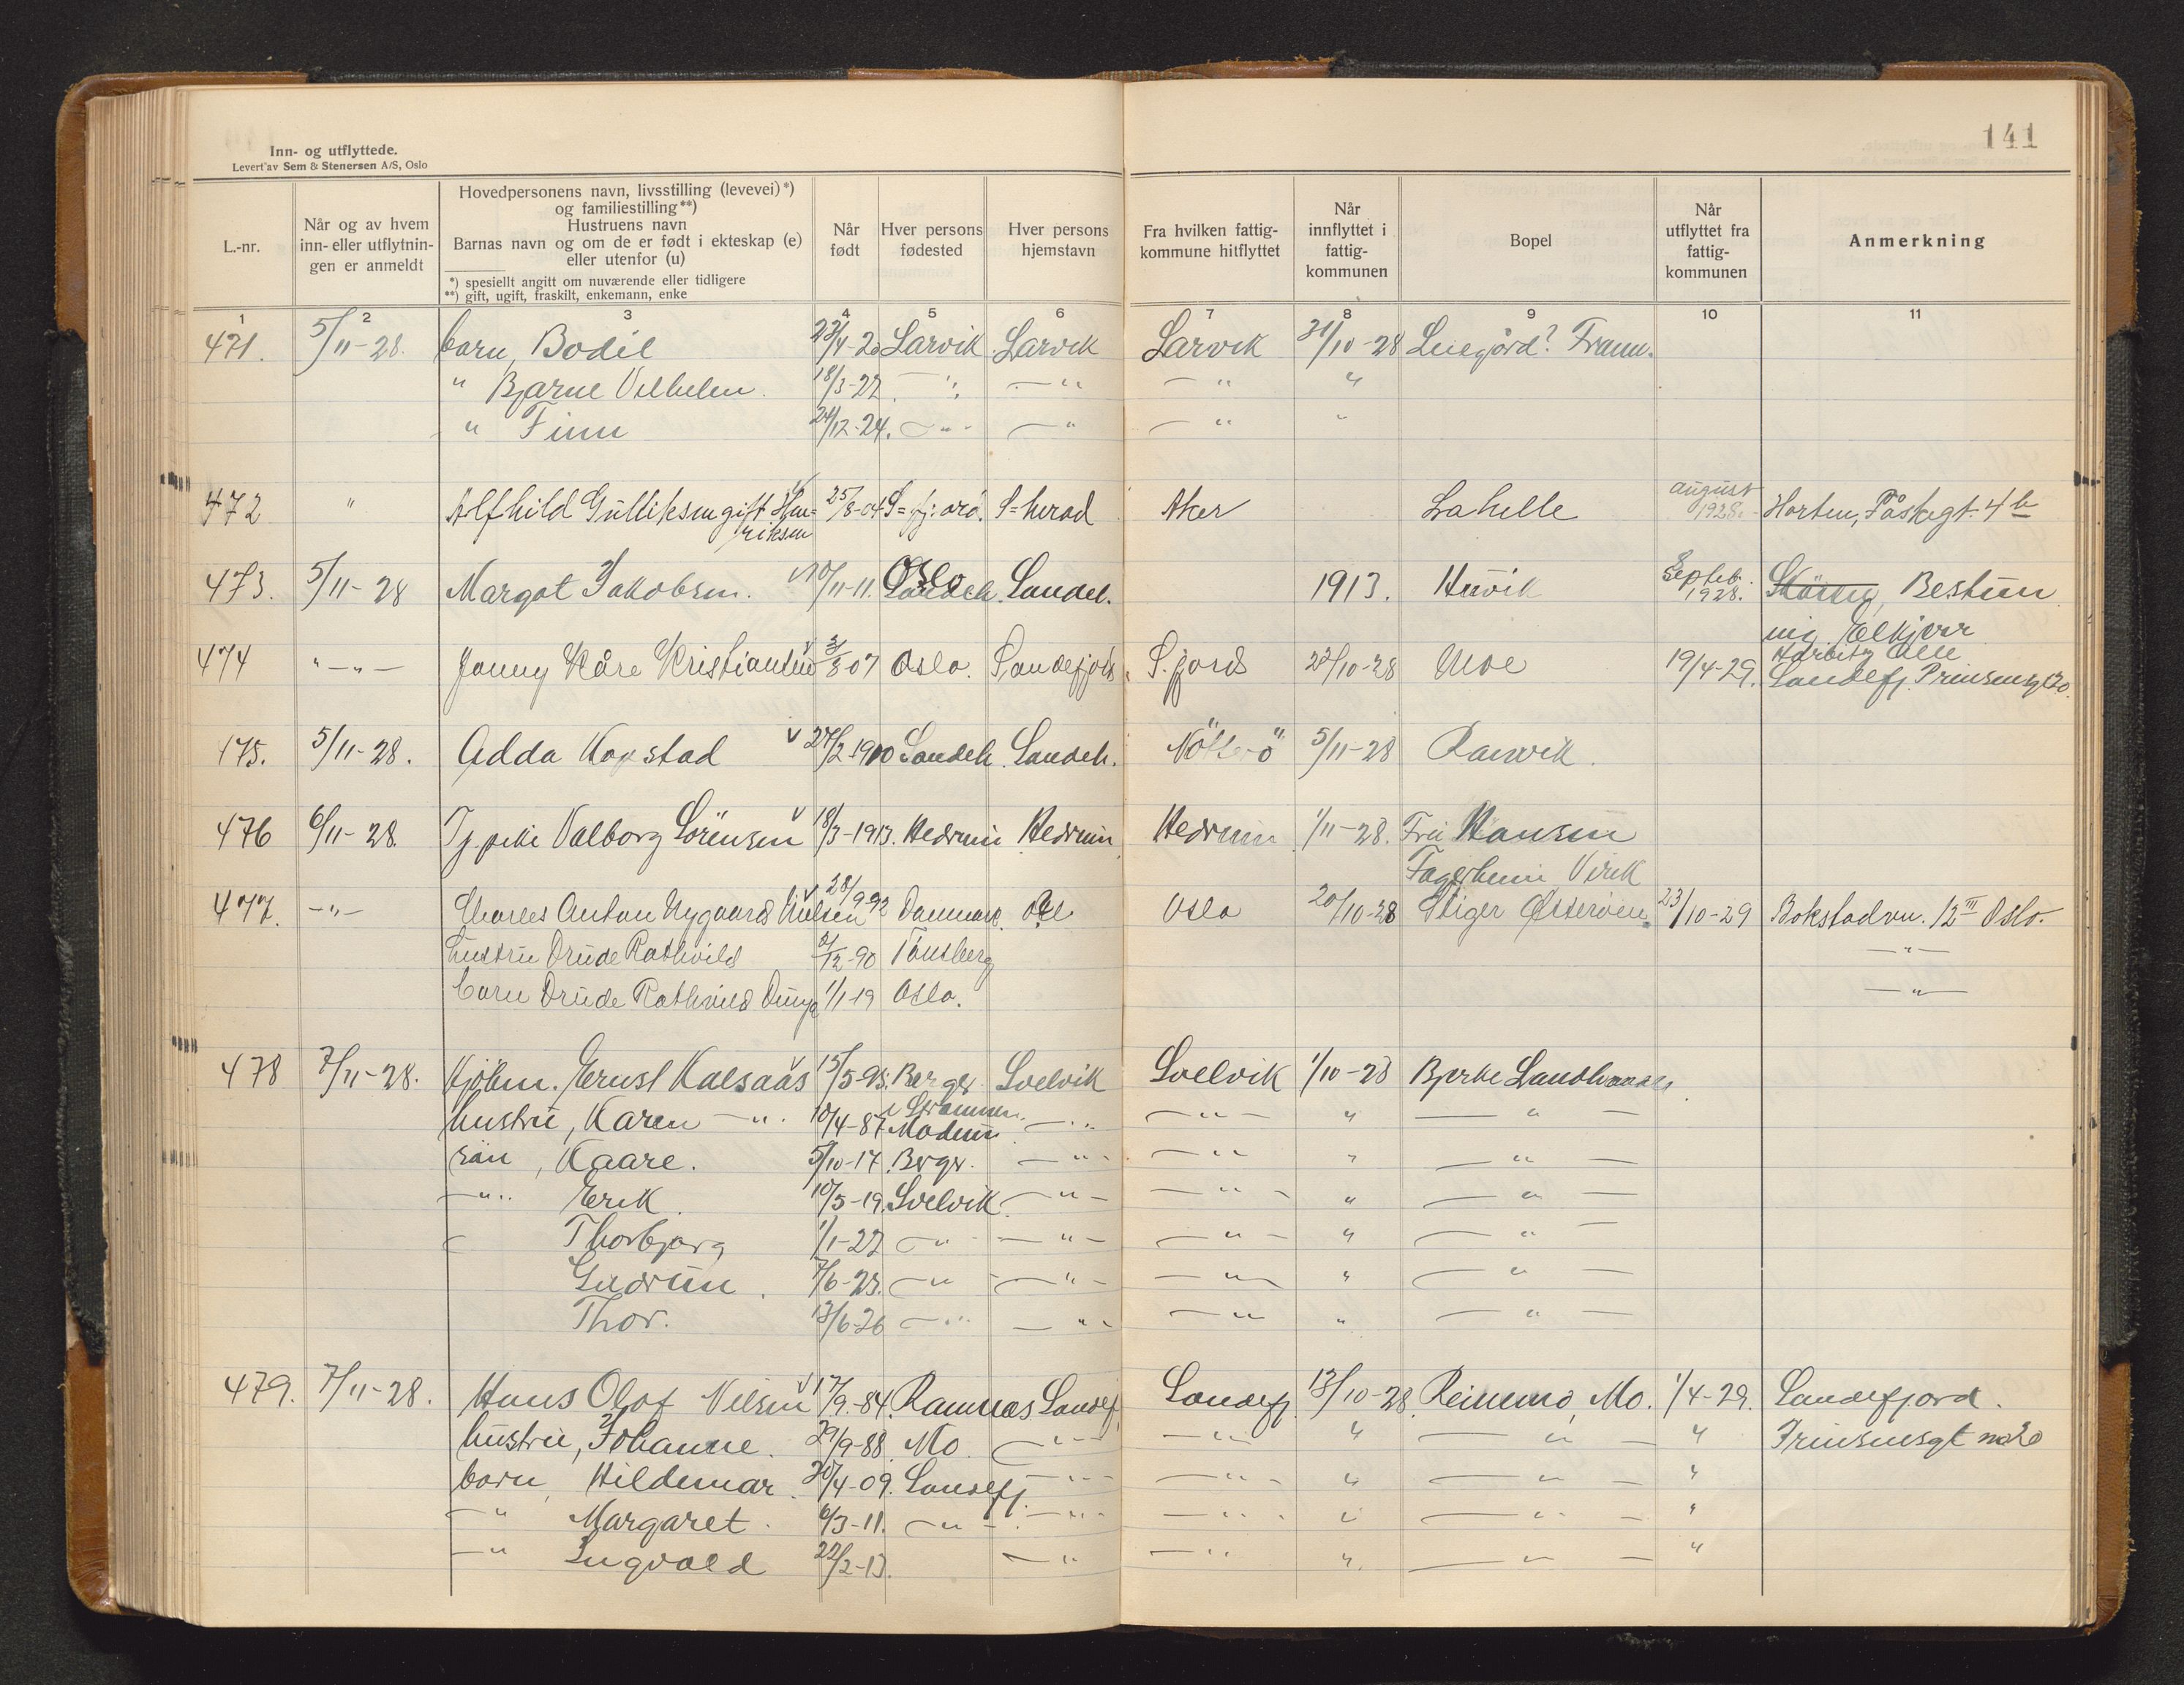 141
Inn- og utflyttede.
Levert av Sem & Stenersen A/S, Oslo
L.-nr.
Når og av hvem inn- eller utflytnin-gen er anmeldt
Hovedpersonens navn, livsstilling (levevei)*)
og familiestilling**)
Hustruens navn
Barnas navn og om de er født i ekteskap (e)
eller utenfor (u)
*) spesiellt angitt om nuværende eller tidligere
**) gift, ugift, fraskilt, enkemann, enke
Når født
Hver persons fødested
Hver persons hjemstavn
Fra hvilken fattig-kommune hitflyttet
Når innflyttet i fattig-kommunen
Bopel
Når utflyttet fra fattig-kommunen
Anmerkning
1 2 3 4 5 6 7 8 9 10 11
471. 5/11-28. barn, Bodil Larvik Larvik Larvik 31/10-28
" Bjarne Vilhelm. 18/3-22 - " - " - " "
" Finn 24/12-24. - " - - " - " "
472 " Alfhild Gulliksen gift Hen= 25/8-04 S=herad Aker Lahelle august
riksen 1928. Horten, 4b
473. 5/11-28 Margot Jakobsen. Oslo Sandeh. 1913. Huvik Septeb. 1928. Bestun
474 " - " - Jonny Kåre Kristiansen Oslo. Sandefjord S.fjord 22/10-28 Moe 19/4-29. Sandefj. Prinsensgt 20.
475. 5/11-28. Adda Kopstad 27/2-1900 Sandeh. Sandeh. Nötterö 5/11-28 Ranvik.
476 6/11-28. Valborg Sörensen 18/3-1913. Hedrum Hedrum Hedrum 1/11-28. Fru Hansen
Fagerheim Virik
477. - " - Charles Anton Nygaard Nilsen 28/9 92 Danmark Oslo 20/10-28 Stiger Østerøien 23/10-29 Bokstadvn. 12 III Oslo.
hustru Drude Rathvild -90 Tönsberg - " -
barn Drude Rathvild 1/1-19 Oslo. - " -
478 7/11-28. Kjøbm. Ernst Kalsaas 15/5-95. Berger Svelvik Svelvik 1/10-28 Bjerke Landhandel.
i Strømmen.
hustru, Karen - " . 10/4-87 Modum - " - " - " - " -
sön, Kaare. 5/10-17. Berger. - " - - " - " - " -
- " Erik. 10/5-19. Svelvik - " - - " - " - " -
- Thorbjørg 1/1-22 - " - - " - - " - " - " -
Gudrun. 7/6-23. - " - - " - - " - " - " -
Thor. 13/6-26 - " - - " - " " - " -
479. 7/11-28. Hans Olaf Nilsen 17/9-84. Ramnæs Sandefj. Sandefj. 13/10-28. Reinemo, Mo. 1/4-29. Sandefjord.
hustru, Johanne. 29/9-88. Mo. - " - - " - " - " - " Prinsensgt no 20
barn, Hildemar. 20/4-09. Sandefj. - " - - " - " - " - "
- " Margaret. 6/3-11. - " - - " - - " - " - " - "
- " Ingvald 22/2-13. - " - " " - " - "